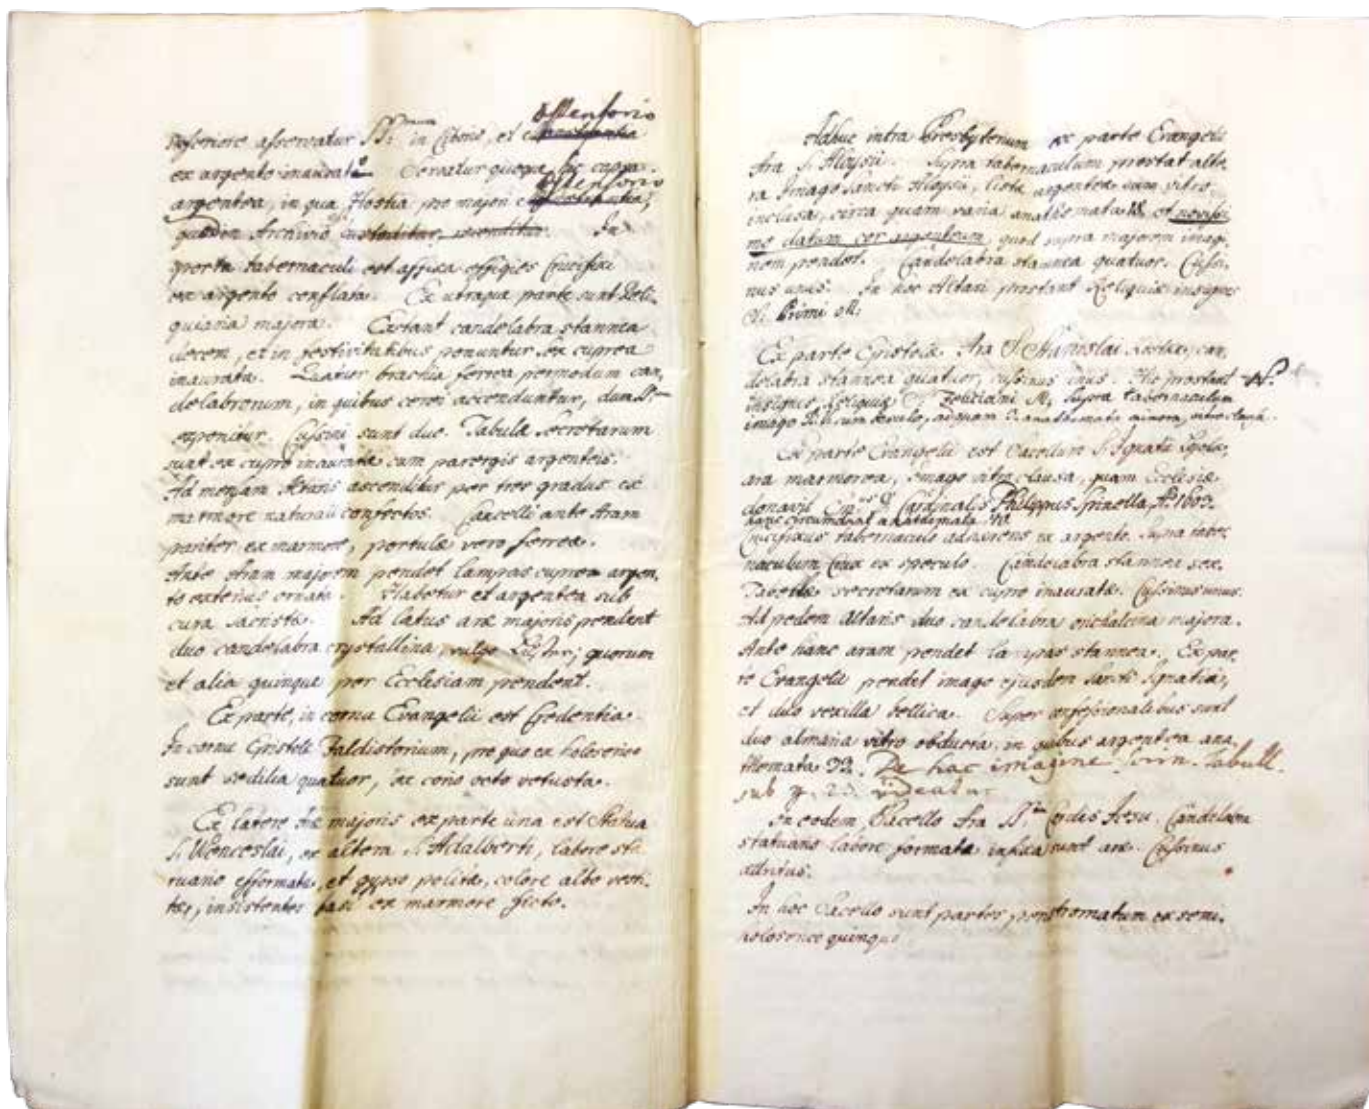 ostensorio
inferiore asservatur SS. in Ciborio, et
ex argento inaurato. Servatur quoque hic capsa
ostensorio
argentea, in qua Hostia pro majori
quod in Archivio custoditur, reconditur. In
porta tabernaculi est affixa effigies Crucifixi
ex argento conflata. Ex utraque parte sunt Reli-
quiaria majora. Extant candelabra stannea
decem, et in festivitatibus ponuntur sex cuprea
inaurata. Quatuor brachia ferrea permodum can-
delabrorum, in quibus cerei accenduntur, dum SS.
exponitur. Cussini sunt duo. Tabulae secretarum
sunt ex cupro inaurata cum parergis argenteis.
Ad mensam Altaris ascenditur per tres gradus ex
marmore naturali confectos. Cancelli ante Aram
pariter ex marmore, portula vero ferrea.
Ante Aram majorem pendet lampas cuprea argen-
to exterius ornata. Habetur et argentea sub
cura sacristae. Ad latus arae majoris pendent
duo candelabra crystallina vulgo Luster, quorum
et alia quinque per Ecclesiam pendent.
Ex parte, in cornu Evangelii est Credentia.
In cornu Epistolae Faldistorium, pro quo ex holoserico
sunt sedilia quatuor, ex octo vetusta.
Ex latere Arae majoris ex parte una est Statua
S. Wenceslai, ex altera S. Adalberti, labore sta-
tuario efformatae, et gypso polita, colore albo vesti-
tae, insistentes basi ex marmore facto.
Adhuc intra Presbyterium ex parte Evangelii
Ara S. Aloysii. Supra tabernaculum prostat alte-
ra Imago Sancti Aloysii, lista argentea cum vitro
inclusa, circa quam varia anathemata 18. et novissi-
me datum cor argenteum, quod supra majorem imagi-
nem pendet. Candelabra stannea quatuor. Cussi-
nus unus. In hoc Altari prostant Reliquiae insignes
S. Primi M.
Ex parte Epistolae Ara S. Stanislai Kostkae, can-
delabra stannea quatuor, cussinus unus. Hic prostant
insignes Reliquiae S. Feliciani M. Supra tabernaculum
imago anathemata minora, vitro clausa.
Ex parte Evangelii est Sacellum S. Ignatii Lojolae,
ara marmorea, imago vitro clausa, quam Ecclesiae
donavit Cardinalis Philippus Spinella, A. 1603.
hanc circumdant anathemata
Crucifixus tabernaculo adhaerens ex argento. Supra taber-
naculum Crux ex speculo. Candelabra stannea sex.
Tabellae secretarum ex cupro inauratae. Cussinus unus.
Ad pedem Altaris duo candelabra orichalcina majora.
Ante hanc aram pendet lampas stannea. Ex par-
te Evangelii pendet imago ejusdem Sancti Ignatii,
et duo vexilla bellica. Super confessionalibus sunt
duo almaria vitro obducta, in quibus argentea ana-
themata 32. De hac imagine
sub 23. videatur
In eodem Sacello Ara SS. Cordis Jesu. Candelabra
statuario labore formata infixa sunt arae. Cussinus
attritus.
In hoc Sacello sunt partes peristromatum ex semi-
holoserico quinque